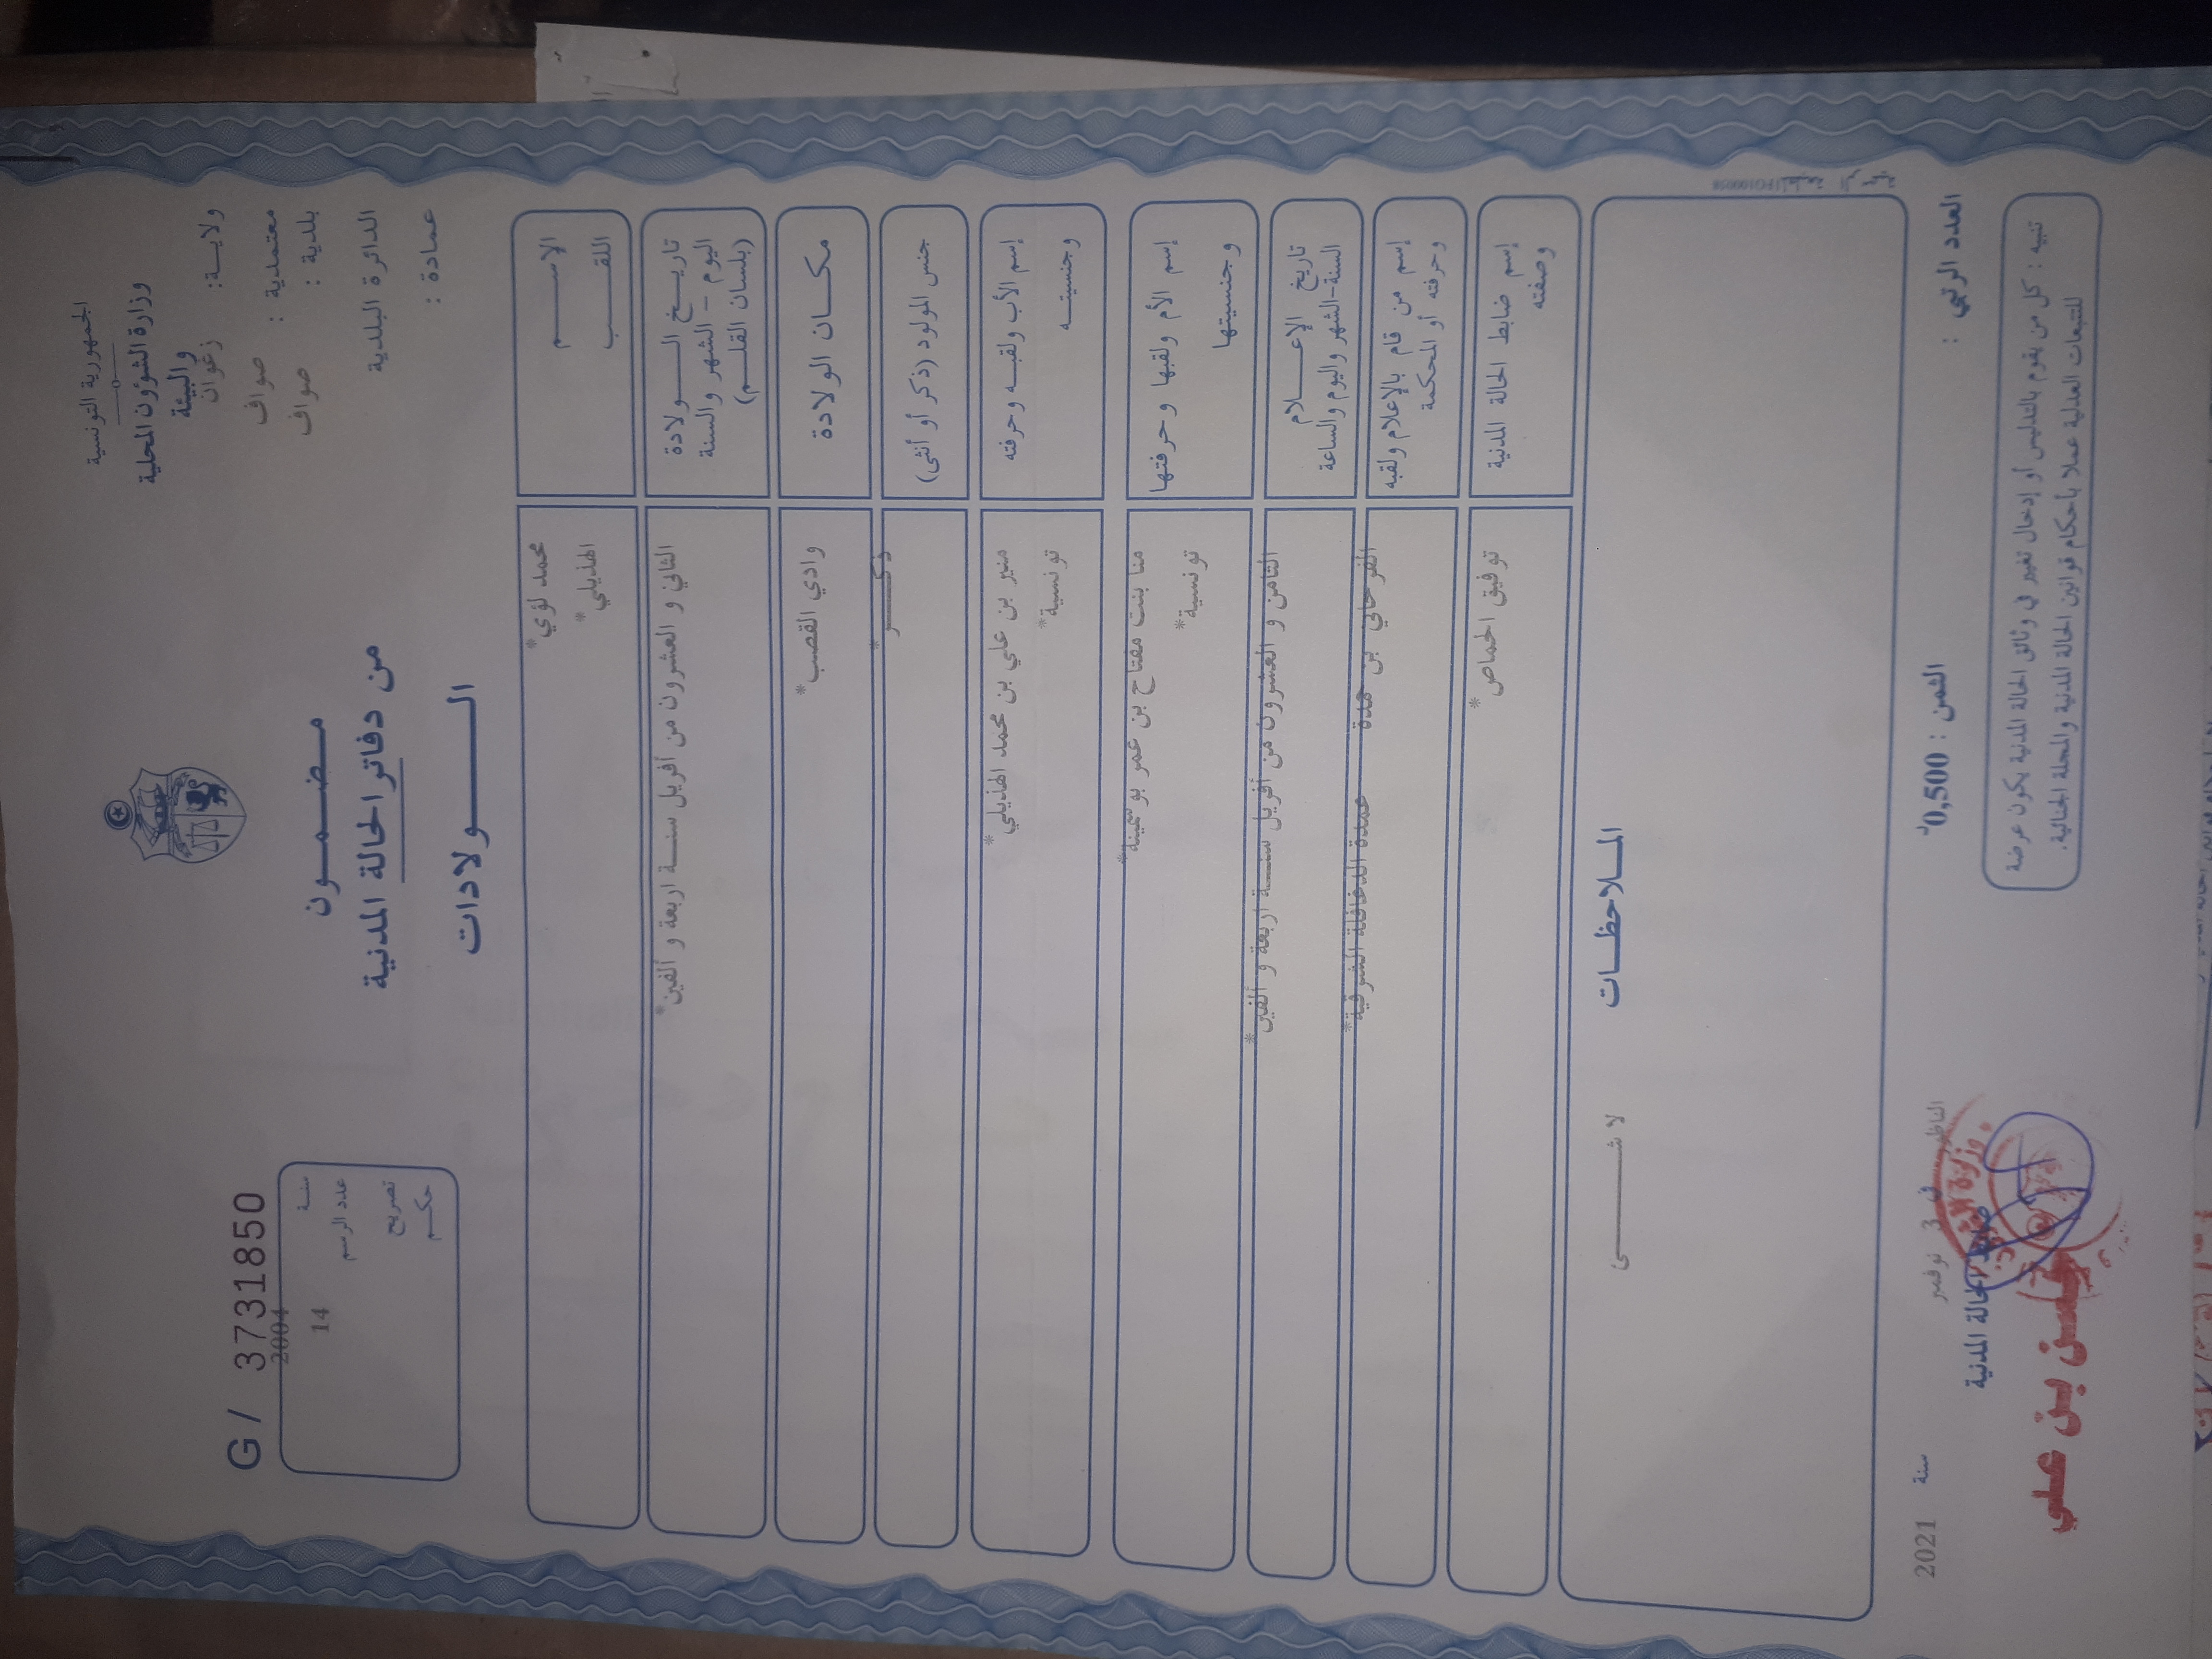 الجمهورية التونسية
وزارة الشؤون المحلية
والبيئة
ولاية: زغوان
معتمدية : صواف
بلدية : صواف
الدائرة البلدية
عمادة :
مضمون
من دفاتر الحالة المدنية
الولادات
G / 3731850
سنة 2004
عدد الرسم 14
تصريح
حكم
الاسم محمد لؤي*
اللقب الهذيلي*
تاريخ الولادة
اليوم - الشهر والسنة
(بلسان القلم)
الثاني و العشرون من أفريل سنة اربعة و ألفين*
مكان الولادة وادي القصب*
جنس المولود (ذكر أو أنثى) ذكر*
إسم الأب ولقبه وحرفته منير بن علي بن محمد الهذيلي*
وجنسيته تونسية*
إسم الأم ولقبها وحرفتها منا بنت مفتاح بن عمر بوسمينة*
وجنسيتها تونسية*
تاريخ الإعلام
السنة-الشهر واليوم والساعة
الثامن و العشرون من أفريل سنة اربعة و ألفين*
إسم من قام بالإعلام ولقبه
وحرفته أو المحكمة
الفرحاني بن حمدة عمدة الدغافلة الشرقية*
إسم ضابط الحالة المدنية
وصفته
توفيق الحماص*
الملاحظات
لا شى
العدد الرتبي :
الثمن : 0,500د
الناظور في 3 نوفمبر سنة 2021
ضابط الحالة المدنية
بن علي
تنبيه : كل من يقوم بالتدليس أو إدخال تغيير في وثائق الحالة المدنية يكون عرضة
للتتبعات العدلية عملا بأحكام قوانين الحالة المدنية والمجلة الجنائية.